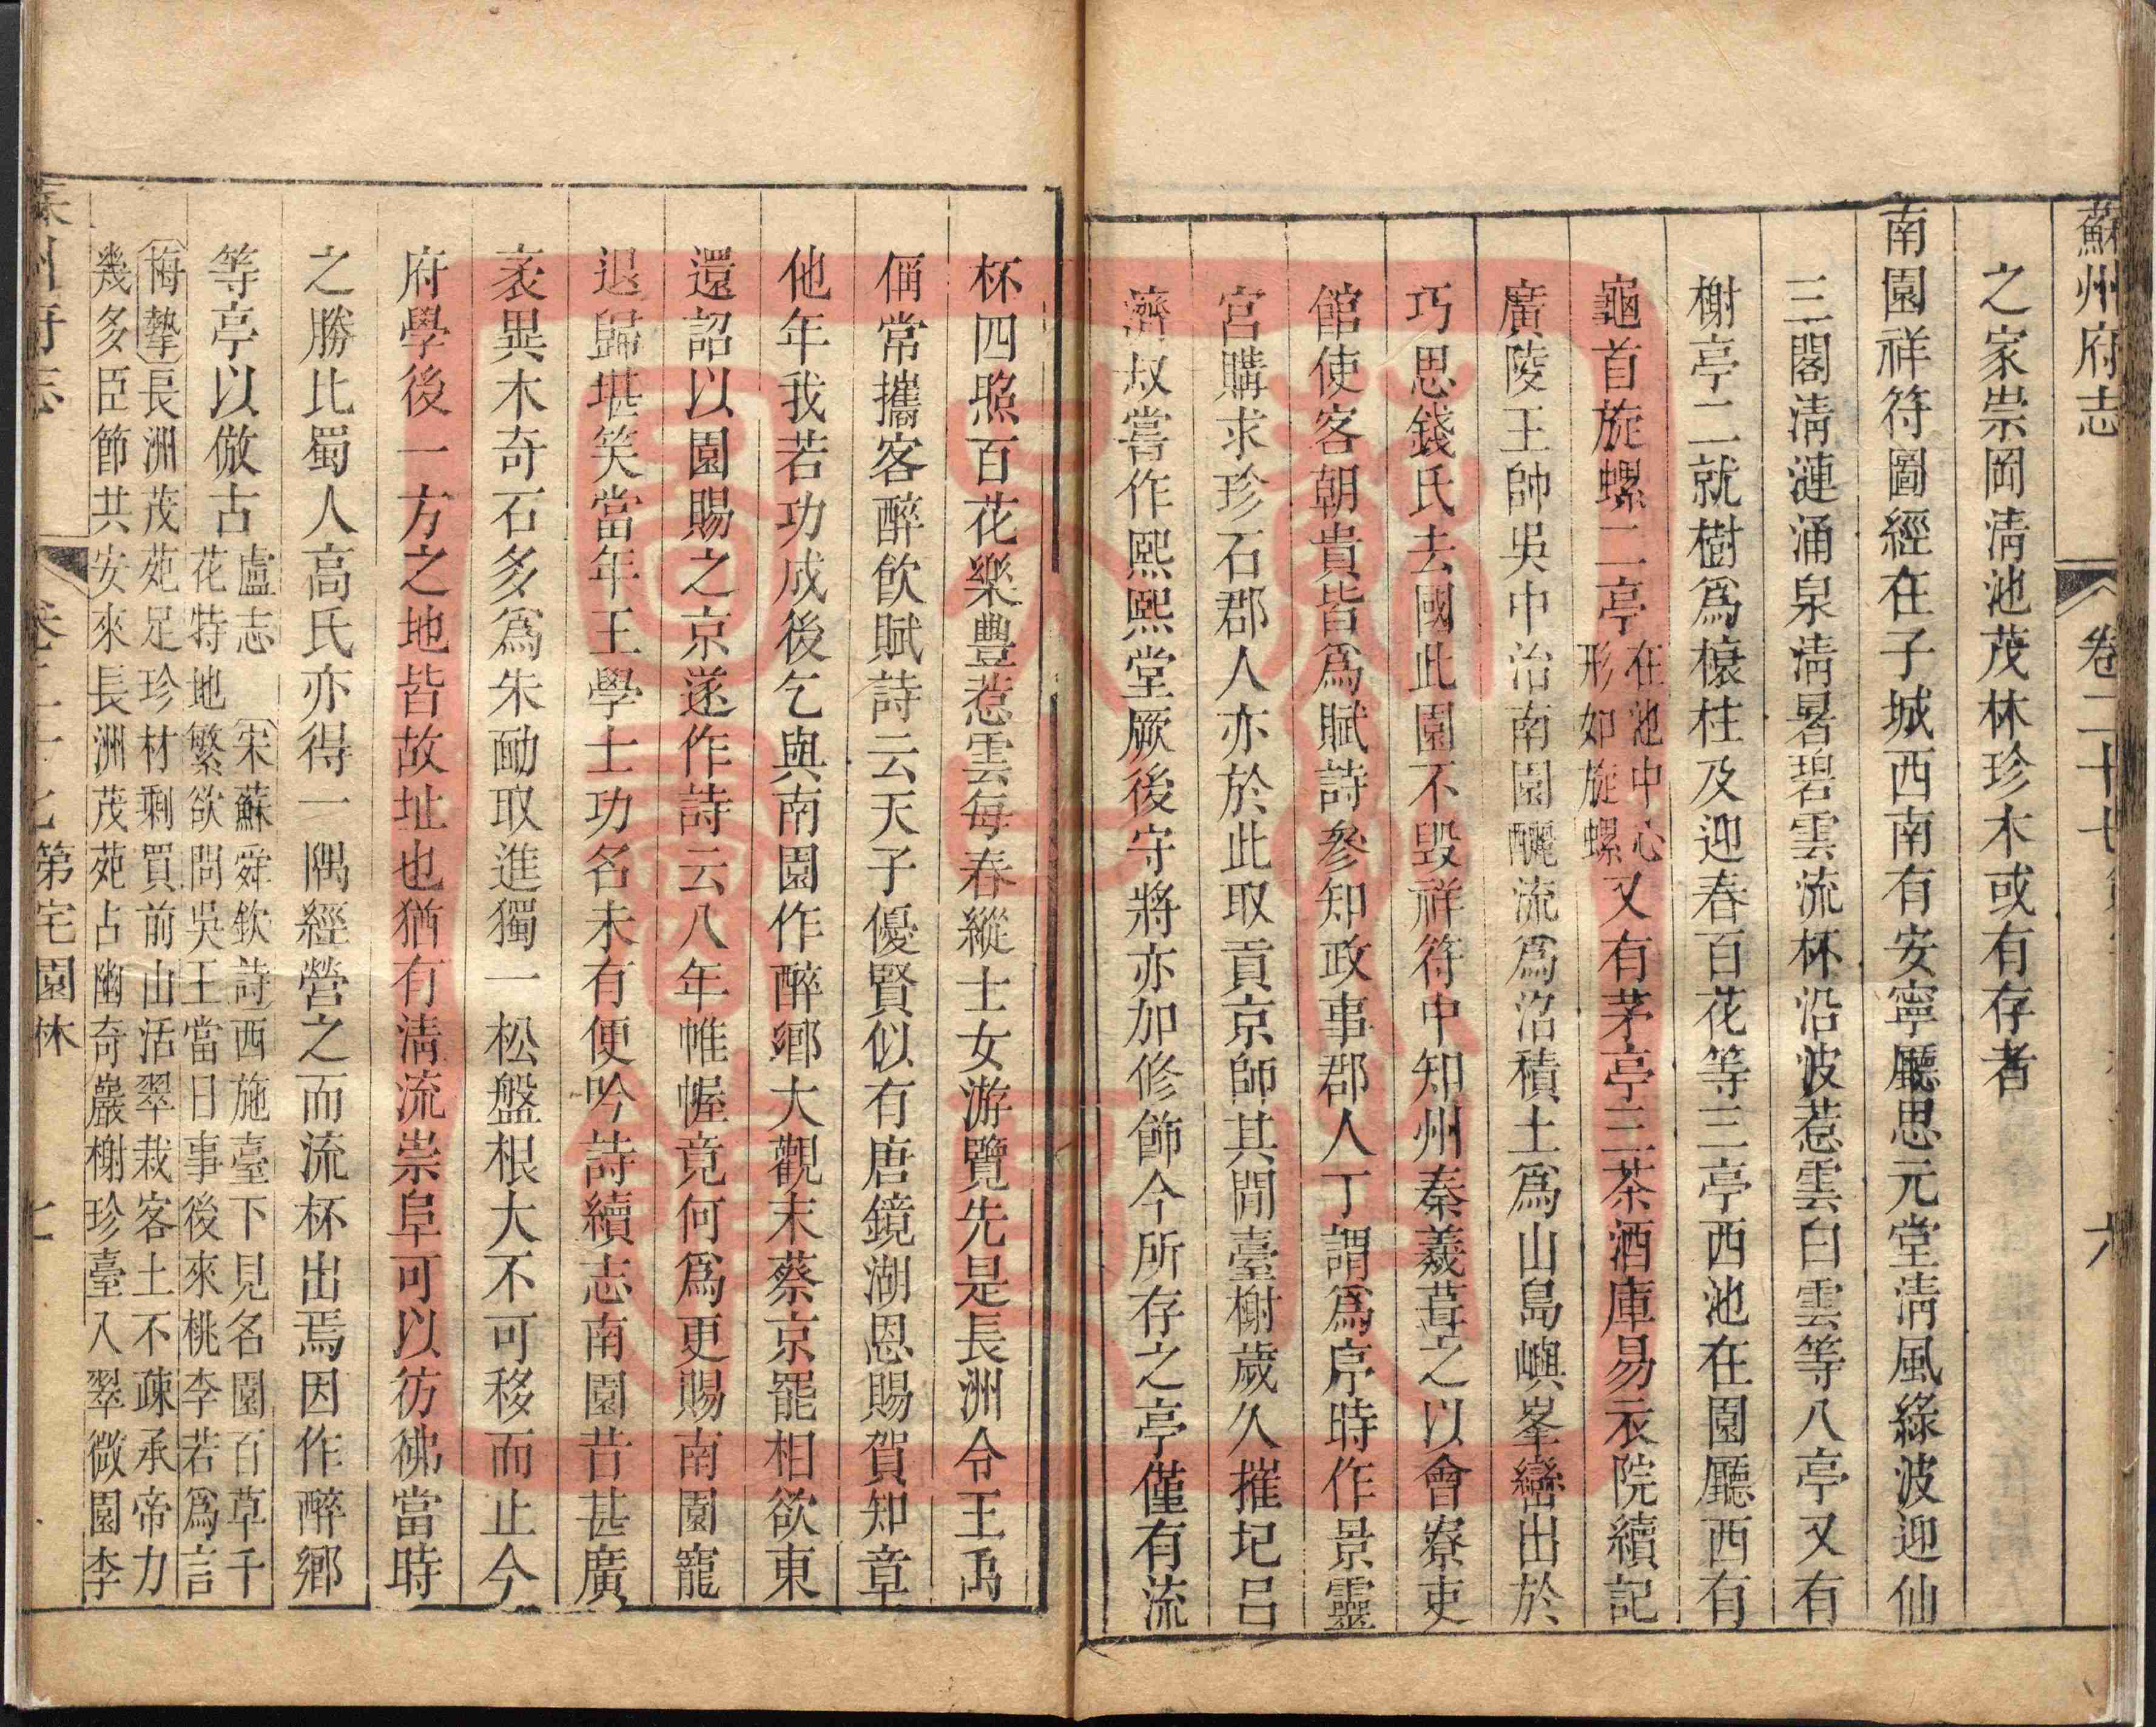 蘇州府志
卷二十七
六
之家崇岡淸池茂林珍木或有存者
南園祥符圖經在子城西南有安寧廳思元堂淸風綠波迎仙
三閣淸漣涌泉淸暑碧雲流杯沿波惹雲白雲等八亭又有
榭亭二就樹爲檍柱及迎春百花等三亭西池在園廳西有
龜首旋螺二亭在池中心形如旋螺又有茅亭三茶酒庫易衣院續記
廣陵王帥吳中治南園釃流爲沼積土爲山島嶼峯巒出於
巧思錢氏去國此園不毀祥符中知州秦羲葺之以會寮吏
館使客朝貴皆爲賦詩參知政事郡人丁謂爲序時作景靈
宮購求珍石郡人亦於此取貢京師其閒臺榭歲久摧圮呂
濟叔嘗作熙熙堂厥後守將亦加修飾今所存之亭僅有流
杯四照百花樂豊惹雲每春縱士女游覽先是長洲令王禹
偁常攜客醉飲賦詩云天子優賢似有唐鏡湖恩賜賀知章
他年我若功成後乞與南園作醉鄉大觀末蔡京罷相欲東
還詔以園賜之京遂作詩云八年帷幄竟何爲更賜南園寵
退歸堪笑當年王學士功名未有便吟詩續志南園昔甚廣
袤異木奇石多爲朱勔取進獨一松盤根大不可移而止今
府學後一方之地皆故址也猶有淸流崇阜可以彷彿當時
之勝比蜀人高氏亦得一隅經營之而流杯出焉因作醉鄉
等亭以倣古盧志宋蘇舜欽詩西施臺下見名園百草千
花特地繁欲問吳王當日事後來桃李若爲言
梅摯長洲茂苑足珍材剩買前山活翠栽客土不疎承帝力
幾多臣節共安來長洲茂苑占幽奇巖榭珍臺入翠微園李
第宅園林